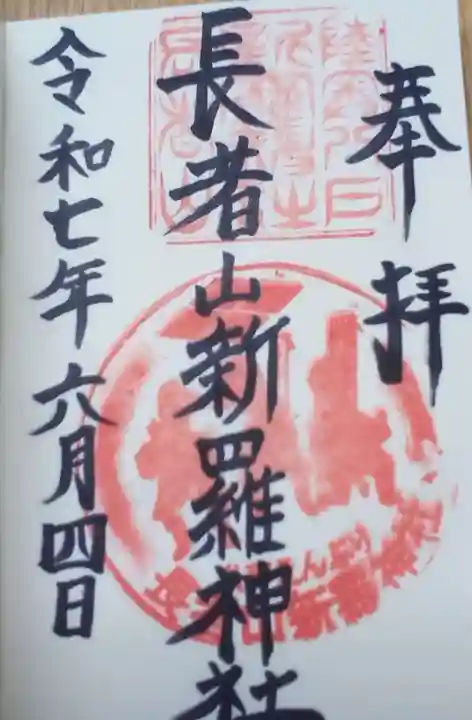 奉拝
長者山新羅神社
令和七年六月四日